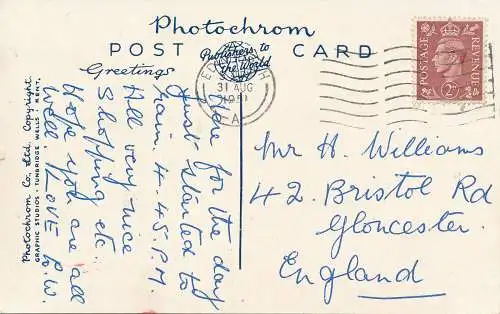 Photochrom
POST CARD
Publishers to
the World
Greetings
31 AUG
1951
A
POSTAGE
REVENUE
2D
Here for the day
Just started to
rain. 4-45 P.M.
All very nice
Shopping etc.
Hope you are all
well, Love R.W.
Photochrom Co. Ltd. Copyright
GRAPHIC STUDIOS - TUNBRIDGE WELLS - KENT.
Mr H. Williams
42 Bristol Rd
Gloucester.
England